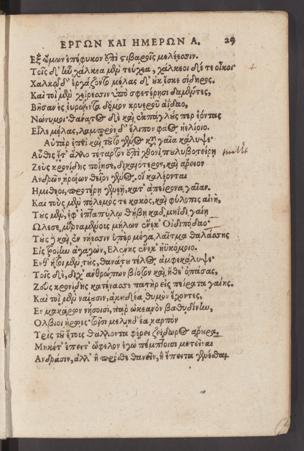 ΕΡΓΩΝ ΚΑΙ ΗΜΕΡΩΝ Α. 29
Ἐξ ὤμων ἐπέφυκον ἐπὶ στιβαροῖς μελέεσσιν.
Τοῖς δ' ἦν χάλκεα μὲν τεύχεα, χάλκεοι δέ τε οἶκοι
Χαλκῷ δ' ἐργάζοντο μέλας δ' οὐκ ἔσκε σίδηρος.
Καὶ τοὶ μὲν χείρεσσιν ὑπὸ σφετέρῃσι δαμέντες,
Βῆσαν ἐς εὐρώεντα δόμον κρυεροῦ ἀΐδαο,
Νώνυμοι· θάνατος δὲ καὶ ἐκπάγλους περ ἐόντας
Εἷλε μέλας, λαμπρὸν δ' ἔλιπον φάος ἠελίοιο.
Αὐτὰρ ἐπεὶ καὶ τοῦτο γένος κατὰ γαῖα κάλυψε
Αὖθις ἔτ' ἄλλο τέταρτον ἐπὶ χθονὶ πολυβοτείρῃ
Ζεὺς κρονίδης ποίησε, δικαιότερον, καὶ ἄρειον
Ἀνδρῶν ἡρώων θεῖον γένος, οἳ καλέονται
Ἡμίθεοι, προτέρῃ γενεῇ, κατ' ἀπείρονα γαῖαν.
Καὶ τοὺς μὲν πόλεμός τε κακὸς, καὶ φύλοπις αἰνὴ,
Τοὺς μὲν, ἐφ' ἑπταπύλῳ θήβῃ καδμηΐδι γαίῃ
Ὤλεσε, μαρναμένους μήλων ἕνεκ' Οἰδιπόδαο·
Τοὺς δὲ καὶ ἐν νήεσσιν ὑπὲρ μέγα λαῖτμα θαλάσσης
Εἰς τροίην ἀγαγὼν, Ἑλένης ἕνεκ' ἠϋκόμοιο.
Ἔνθ' ἤτοι μὲν τοὺς, θανάτου τέλος ἀμφεκάλυψε·
Τοῖς δὲ, δίχ' ἀνθρώπων βίοτον καὶ ἤθε' ὀπάσας,
Ζεὺς κρονίδης κατένασσε πατὴρ ἐς πείρατα γαίης.
Καὶ τοὶ μὲν ναίουσιν, ἀκηδέα θυμὸν ἔχοντες,
Ἐν μακάρων νήσοισι, παρ' ὠκεανὸν βαθυδίνην,
Ὄλβιοι ἥρωες· τοῖσι μελιηδέα καρπὸν
Τρὶς τοῦ ἔτους θάλλοντα φέρει ζείδωρος ἄρουρα.
Μηκέτ' ἔπειτ' ὤφελον ἐγὼ πέμπτοισι μετεῖναι
Ἀνδράσιν, ἀλλ' ἢ πρόσθε θανεῖν, ἢ ἔπειτα γενέσθαι.